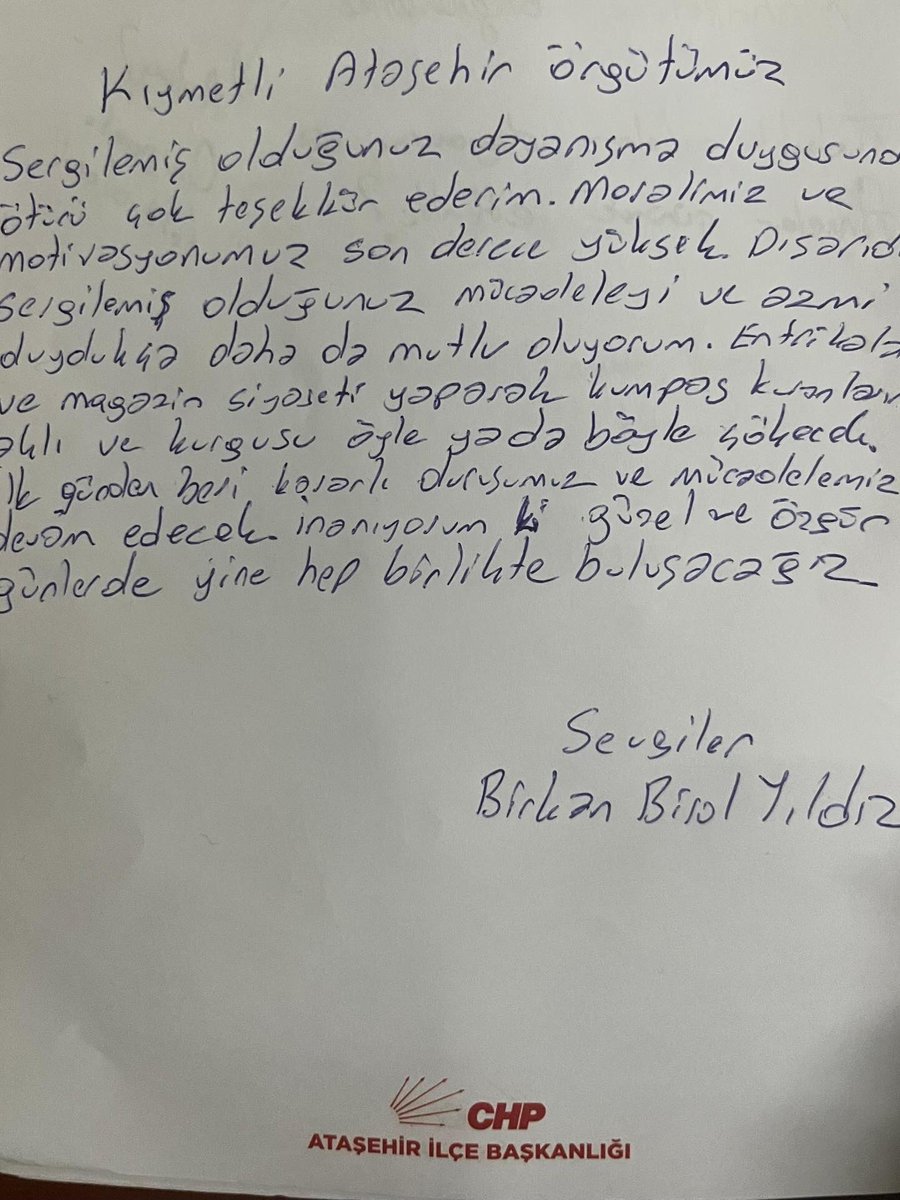 Kıymetli Ataşehir örgütümüz
Sergilemiş olduğunuz dayanışma duygusuna
ötürü çok teşekkür ederim. Moralimiz ve
motivasyonumuz son derece yüksek. Dışarıd
sergilemiş olduğunuz mücadeleyi ve azmi
duydukça daha da mutlu oluyorum. Entrikala
ve magazin siyaseti yaparak kumpas kuranların
aklı ve kurgusu öyle yada böyle çökecek.
İlk günden beri kararlı duruşumuz ve mücadelemiz
devam edecek. inanıyorum ki güzel ve özgür
günlerde yine hep birlikte buluşacağız
Sevgiler
Birkan Birol Yıldız
CHP
ATAŞEHİR İLÇE BAŞKANLIĞI